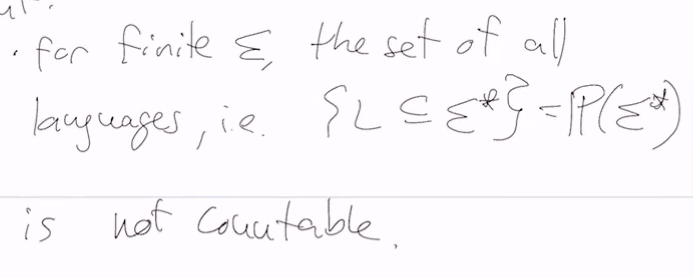 · for finite Σ, the set of all
languages, i.e. {L ⊆ Σ*} = P(Σ*)
is not countable.